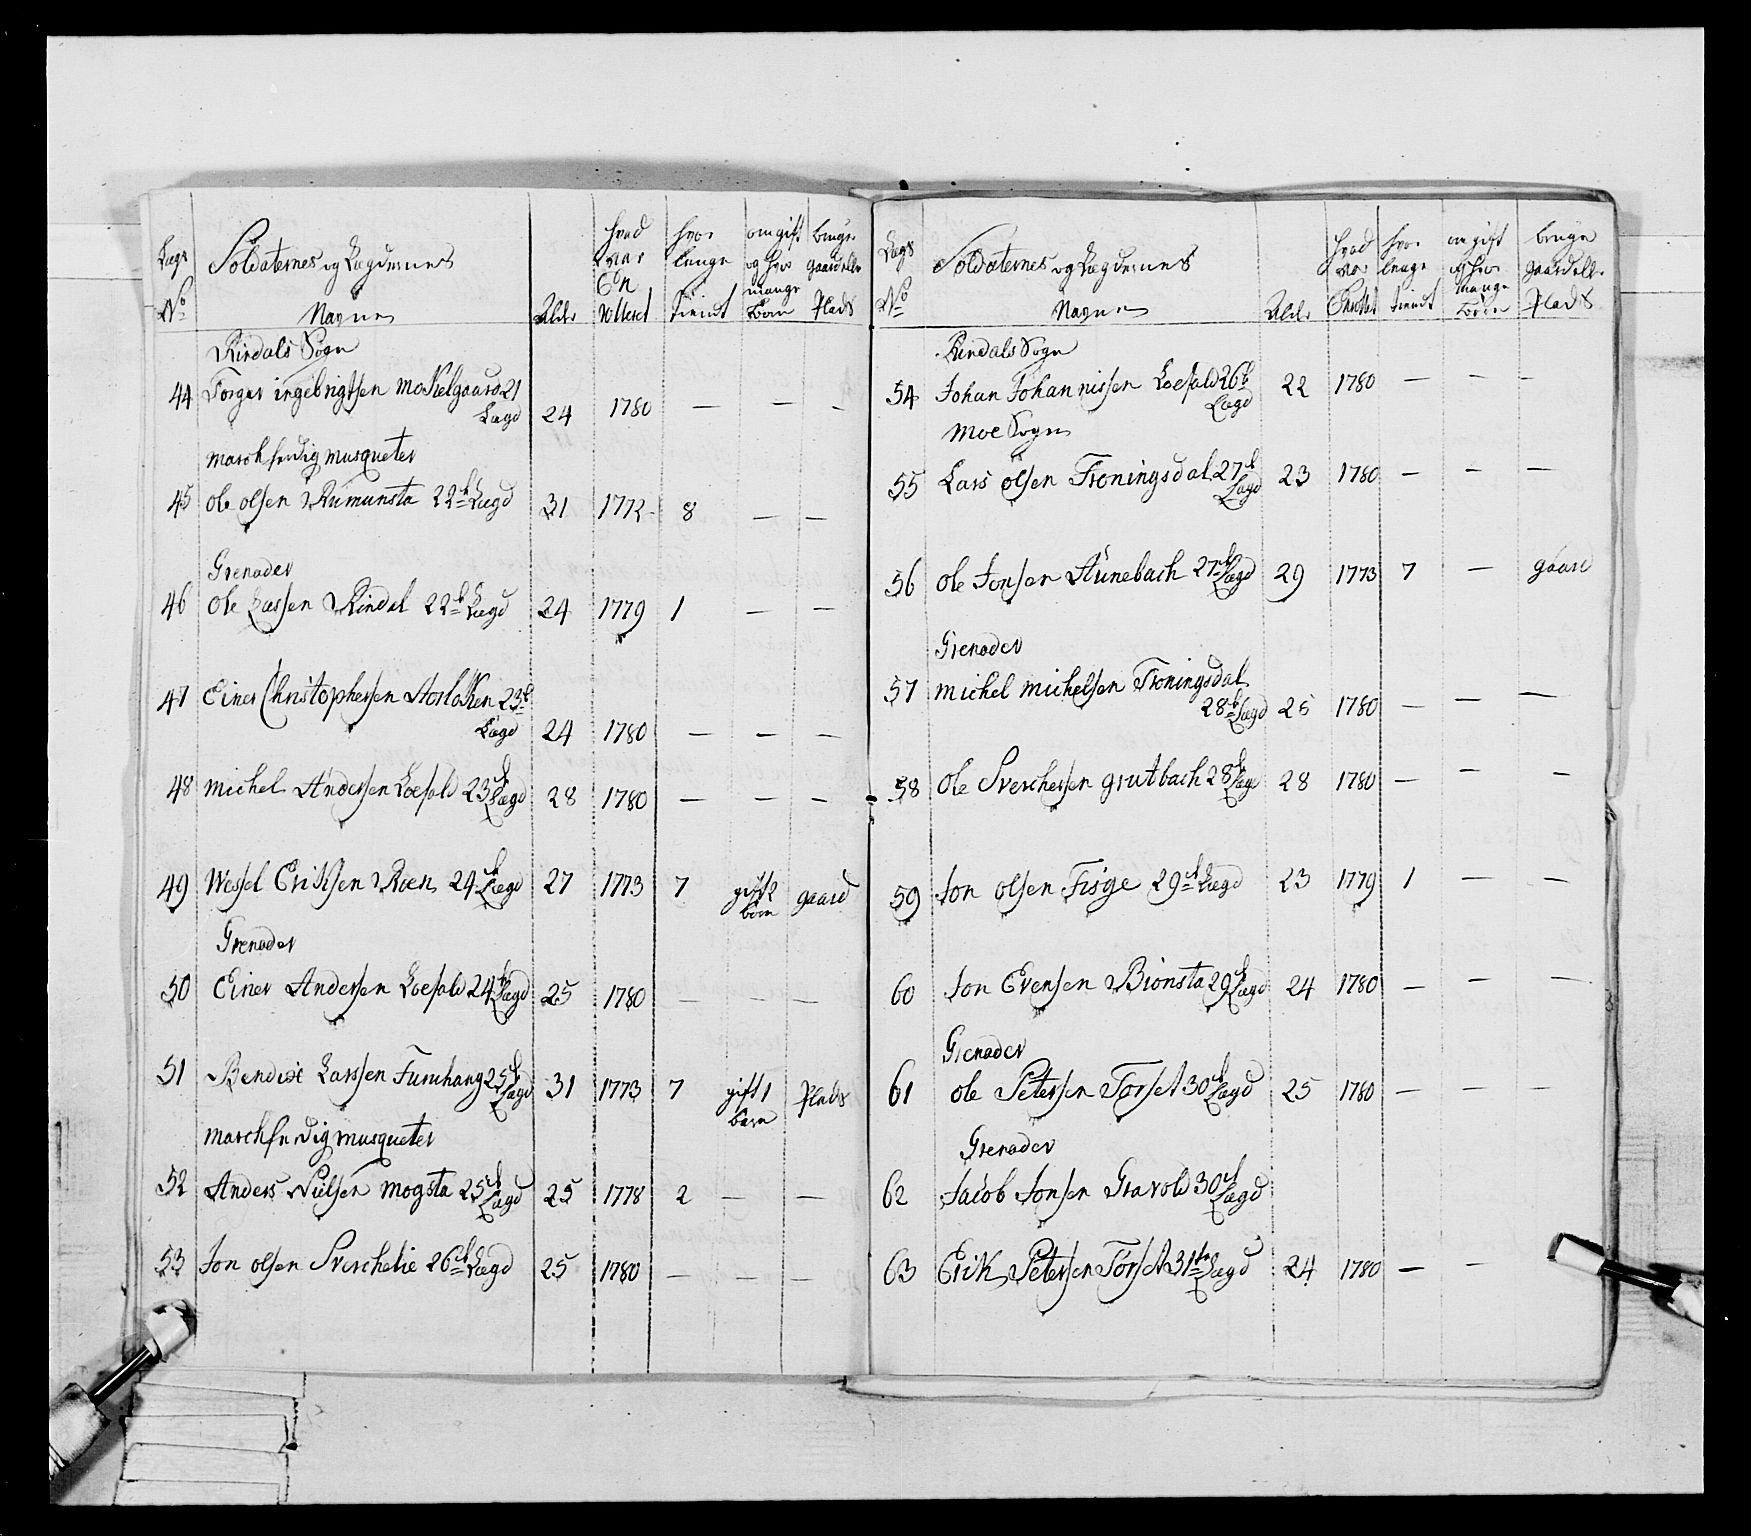 Lægs
No
Soldaternes og Lægdernes
Navne
Alder
hvad
var
En
rolleret
hvor
lenge
tient
om gift
og hvor
mange
børn
bruger
gaard eller
Plads
Rindals Sogn
44 Torger ingebrigtsen Moskelgaard 21
Lægd 24 1780 — — —
marchferdig musqueter
45 Ole olsen Rumunsta 22de Lægd 31 1772 8 — —
Grenader
46 Ole Larsen Rindal 22de Lægd 24 1779 1 — —
47 Einer Christophersen Storløkken 23de
Lægd 24 1780 — — —
48 Michel Andersen Loefald 23de Lægd 28 1780 — — —
49 Wessel Eriksen Roen 24de Lægd 27 1773 7 gift 2 børn gaard
Grenader
50 Einer Andersen Loefald 24de Lægd 25 1780 — — —
51 Bendixt Larssen Furuhaug 25de Lægd 31 1773 7 gift 1 barn Plads
marchferdig musqueter
52 Anders Nielsen Mogsta 25de Lægd 25 1778 2 — —
53 Jon olsen Sverchelie 26de Lægd 25 1780 — — —
Lægs
No
Soldaternes og Lægdernes
Navne
Alder
hvad
var
Enrollet
hvor
lenge
tient
om gift
og hvor
mange
børn
bruger
gaard eller
Plads
Rindals Sogn
54 Johan Johannissen Loefald 26de
Lægd 22 1780 — — —
Moe Sogn
55 Lars olsen Troningsdal 27de
Lægd 23 1780 — — —
56 Ole Jonsen Stunebach 27de Lægd 29 1773 7 — gaard
Grenader
57 Michel Michelsen Troningsdal
28de Lægd 25 1780 — — —
58 Ole Sverchersen Grutbach 28de Lægd 28 1780 — — —
59 Jon olsen Fiske 29de Lægd 23 1779 1 — —
60 Jon Evensen Biønsta 29de Lægd 24 1780 — — —
Grenader
61 Ole Petersen Torset 30de Lægd 25 1780 — — —
Grenader
62 Jacob Jonsen Gravold 30de Lægd
63 Erik Petersen Torset 31te Lægd 24 1780 — —